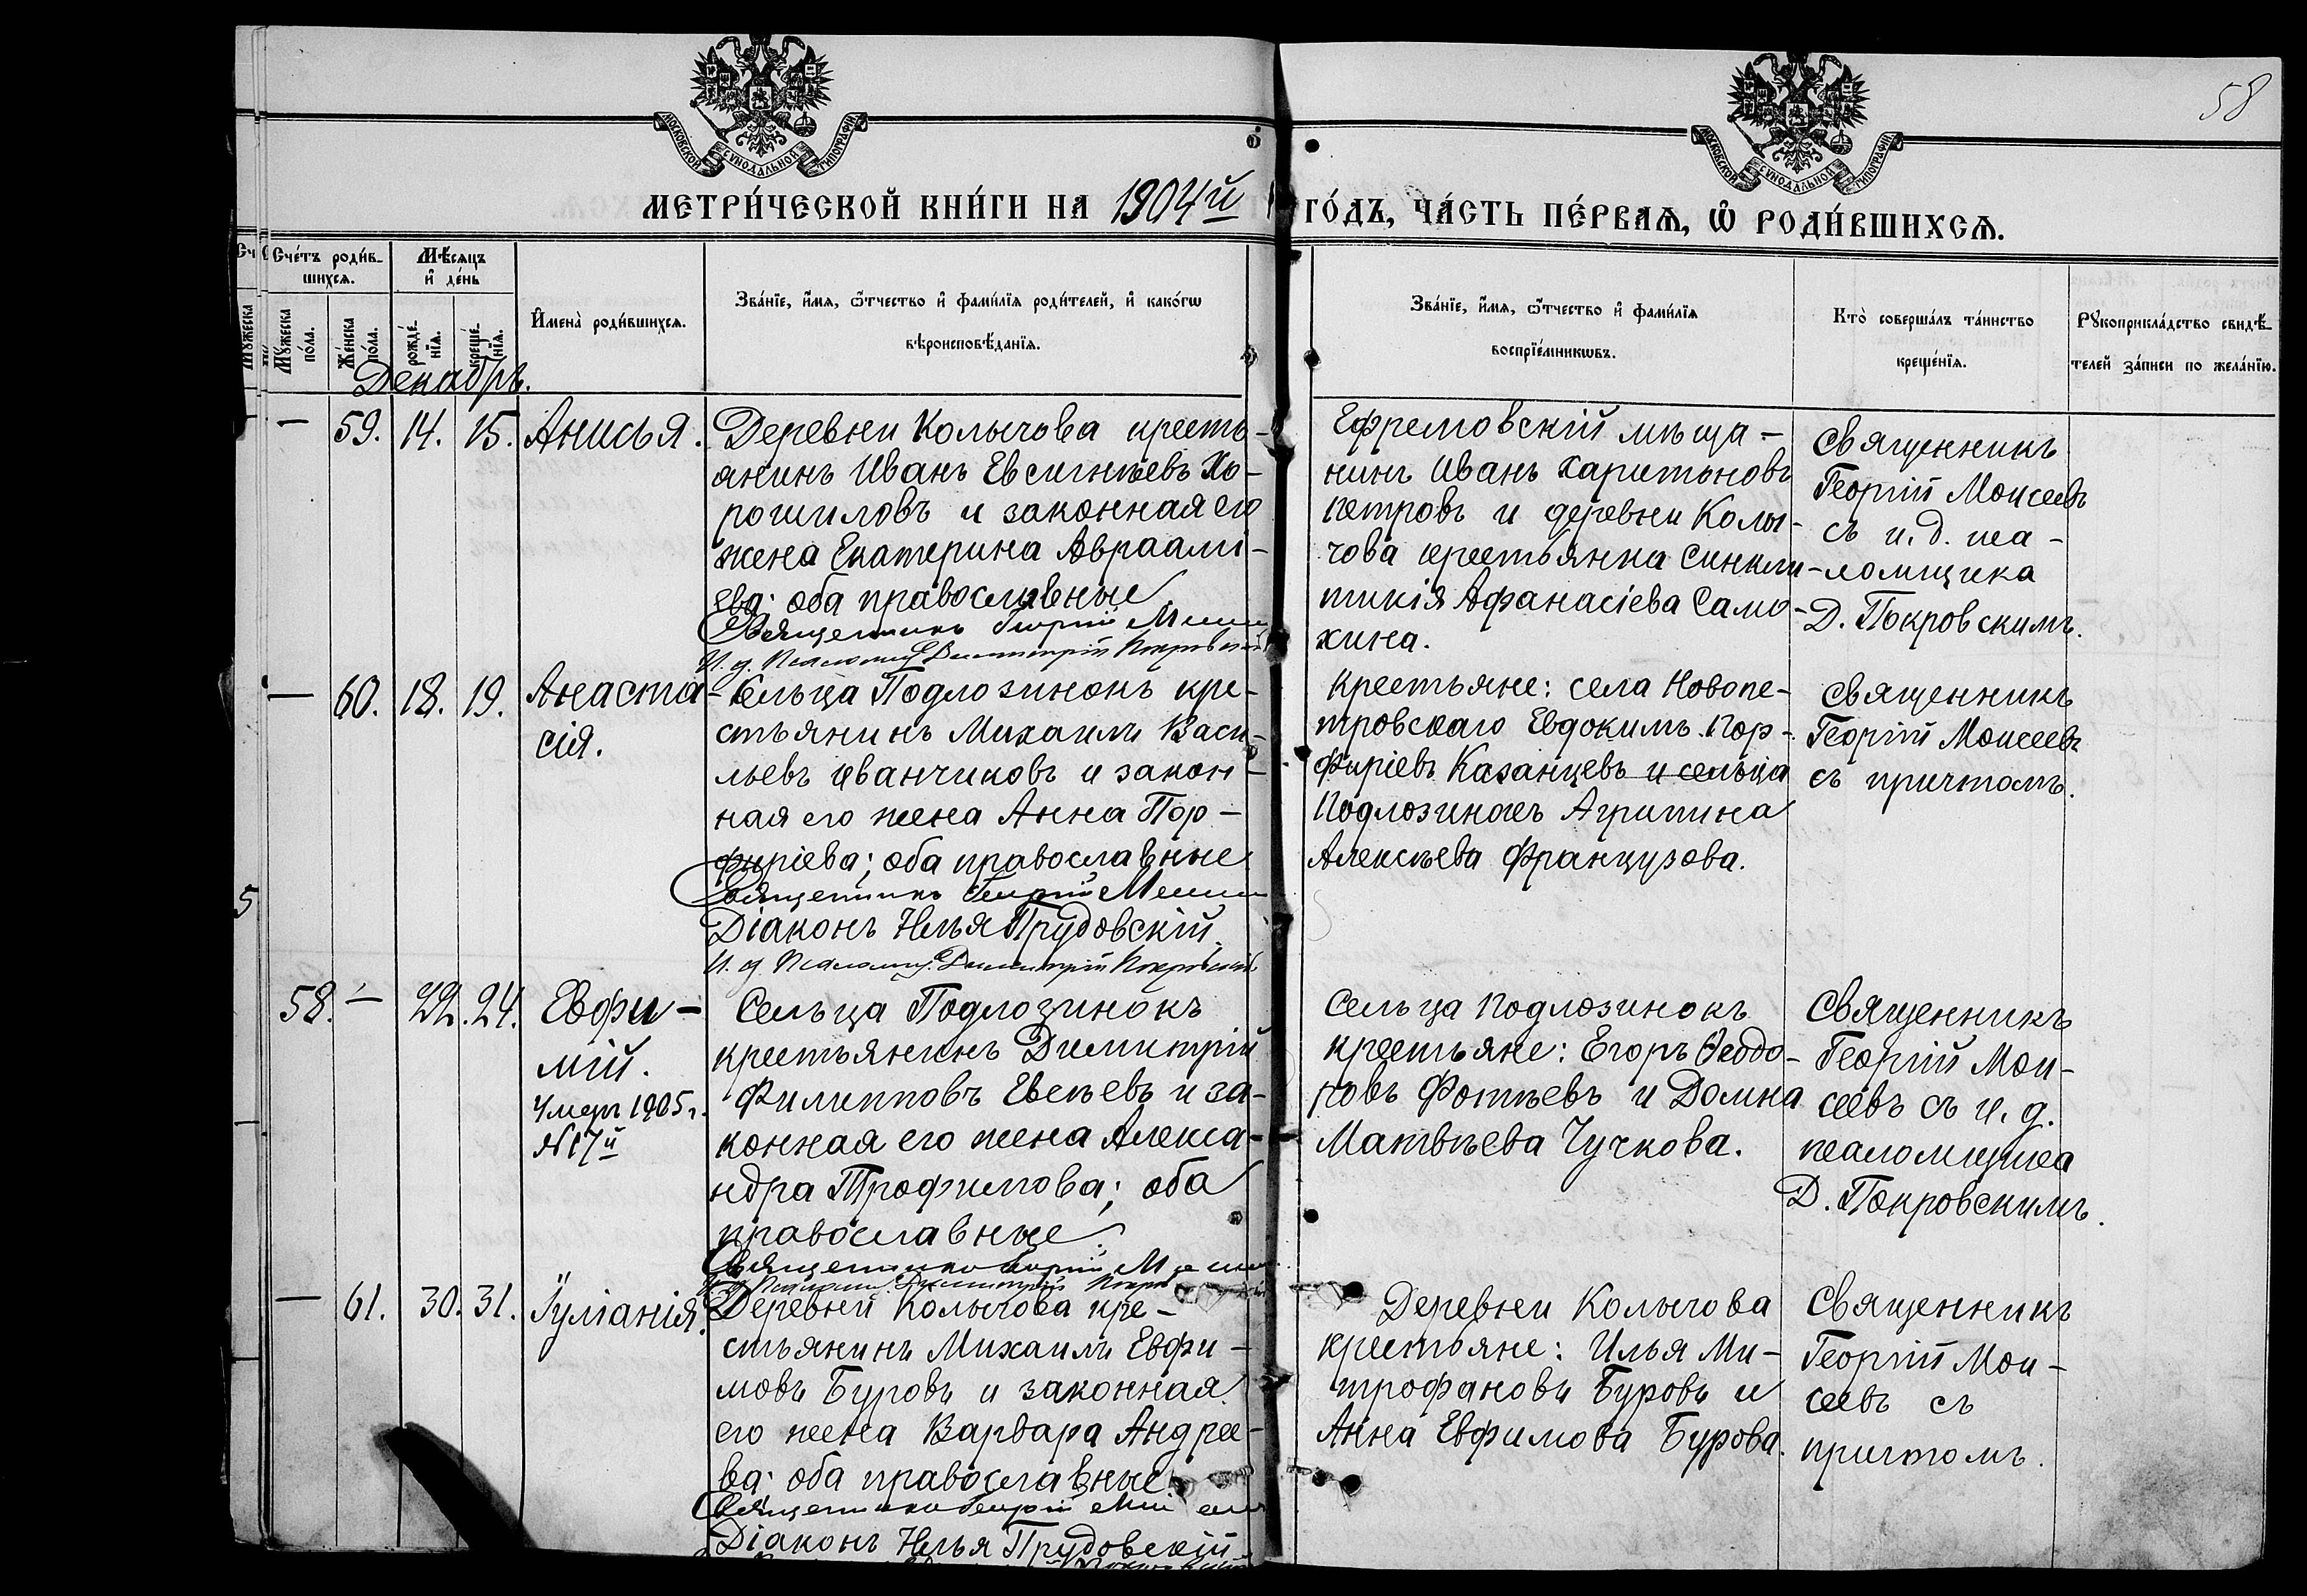 58
МОСКОВСКОЙ СѴНОДАЛЬНОЙ ТИПОГРАФІИ
МОСКОВСКОЙ СѴНОДАЛЬНОЙ ТИПОГРАФІИ
МЕТРИ́ЧЕСКОЙ КНИ́ГИ НА 1904й ГО́ДЪ, ЧА́СТЬ ПЕ́РВАѦ, Ѡ҆ РОДИ́ВШИХСѦ.
Сче́тъ роди́в-
шихсѧ.
Мѣ́сяцъ
и҆ де́нь
Мꙋ́жеска
по́ла.
Же́нска
по́ла.
рожде́-
нїѧ.
креще́-
нїѧ.
И҆мена̀ роди́вшихсѧ.
Зва́нїе, и҆́мѧ, ѻ҆́тчество и҆ фами́лїѧ роди́телей, и҆ како́гѡ
вѣроисповѣ́данїѧ.
Зва́нїе, и҆́мѧ, ѻ҆́тчество и҆ фами́лїѧ
воспрїе́мникѡвъ.
Кто̀ соверша́лъ та́инство
креще́нїѧ.
Рꙋкоприкла́дство свидѣ́-
телей за́писи по жела́нїю.
Декабрь.
— 59. 14. 15. Анисья.
Деревни Колычова кресть-
янинъ Иванъ Евсигнѣевъ Хо-
рошиловъ и законная его
жена Екатерина Авраамі-
ева; оба православные
Священникъ Георгій Моисеевъ
И. д. Псаломщ. Димитрій Покровскій
Ефремовскій мѣща-
нинъ Иванъ Харитоновъ
Петровъ и деревни Колы-
чова крестьянка Синкли-
тикія Афанасіева Само-
хина.
Священникъ
Георгій Моисеевъ
съ и. д. пса-
ломщика
Д. Покровскимъ.
— 60. 18. 19. Анаста-
сія.
Сельца Подлозинокъ кре-
стьянинъ Михаилъ Васи-
льевъ Иванчиковъ и закон-
ная его жена Анна Пор-
фиріева; оба православные
Священникъ Георгій Моисеевъ
Діаконъ Илья Прудовскій.
И. д. Псаломщ. Димитрій Покровскій
Крестьяне: села Новопе-
тровскаго Евдокимъ Пор-
фиріевъ Казанцевъ и сельца
Подлозинокъ Агрипина
Алексѣева Французова.
Священникъ
Георгій Моисеевъ
съ причтомъ.
58. — 22. 24. Евфи-
мій.
Умеръ 1905 г.
№ 17й
Сельца Подлозинокъ
крестьянинъ Димитрій
Филипповъ Евсѣевъ и за-
конная его жена Алекса-
ндра Трофимова; оба
православные.
Священникъ Георгій Моисеевъ
И. д. Псаломщ. Димитрій Покровскій
Сельца Подлозинокъ
крестьяне: Егоръ Ѳеодо-
ровъ Фотѣевъ и Домна
Матвѣева Чучкова.
Священникъ
Георгій Мои-
сеевъ съ и. д.
псаломщика
Д. Покровскимъ.
— 61. 30. 31. Іуліанія.
Деревни Колычова кре-
стьянинъ Михаилъ Евфи-
мовъ Буровъ и законная
его жена Варвара Андрее-
ва; оба православные
Священникъ Георгій Моисеевъ
Діаконъ Илья Прудовскій
Деревни Колычова
крестьяне: Илья Ми-
трофановъ Буровъ и
Анна Евфимова Бурова.
Священникъ
Георгій Мои-
сеевъ съ
причтомъ.